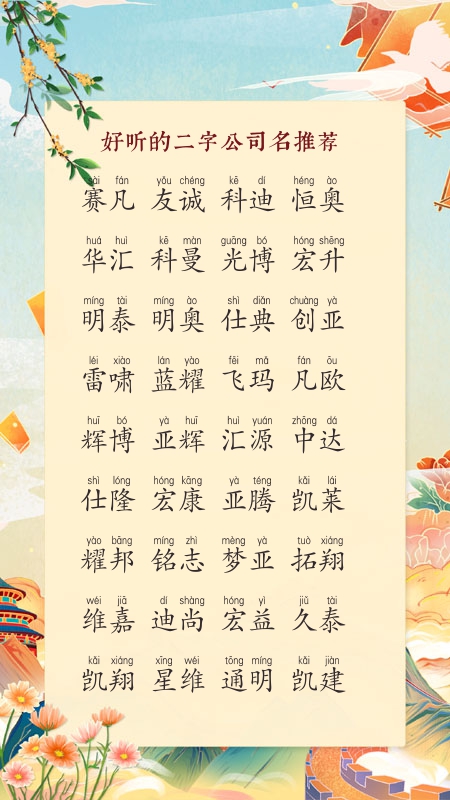 好听的二字公司名推荐
sài fán yǒu chéng kē dí héng ào
赛凡 友诚 科迪 恒奥
huá huì kē màn guāng bó hóng shēng
华汇 科曼 光博 宏升
míng tài míng ào shì diǎn chuàng yà
明泰 明奥 仕典 创亚
léi xiào lán yào fēi mǎ fán ōu
雷啸 蓝耀 飞玛 凡欧
huī bó yà huī huì yuán zhōng dá
辉博 亚辉 汇源 中达
shì lóng hóng kāng yà téng kǎi lái
仕隆 宏康 亚腾 凯莱
yào bāng míng zhì mèng yà tuò xiáng
耀邦 铭志 梦亚 拓翔
wéi jiā dí shàng hóng yì jiǔ tài
维嘉 迪尚 宏益 久泰
kǎi xiáng xīng wéi tōng míng kǎi jiàn
凯翔 星维 通明 凯建